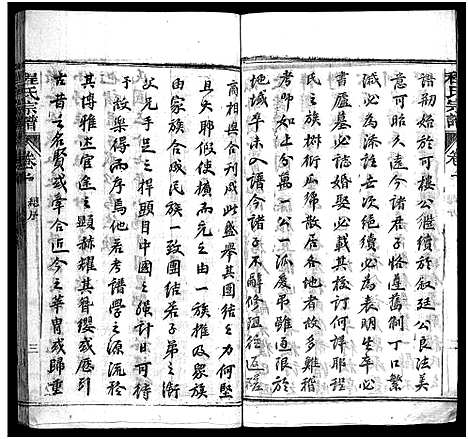 程氏宗譜
卷之
譜剏始於可樓公繼續於叙廷公良法美
意可久遠今諸君子恪遵舊制丁口繁
必為添註茂絕續必為表明生卒必
書廬墓必誌婚娶必載其校訂何其
氏之支派樹衍瓜綿散居各地者故多難稽
考即如傳萬一公一派爰弔雖亟限於
地域卒入譜今諸子不辭修阻徑返蹉
商相與合刊成此盛舉其團結之力何堅
且大聯假使由一族推及家族
由家族合成民族一致團結若子弟之衛
父兄手足捍頭目中國之強計日可待
故樂得而序焉他若考譜學之源流矜
其博雅述宦途之顯赫耀其簪纓或歷引
古昔之名賢或牽合近今之華胄或歸重
程氏宗譜
卷之
總序
三